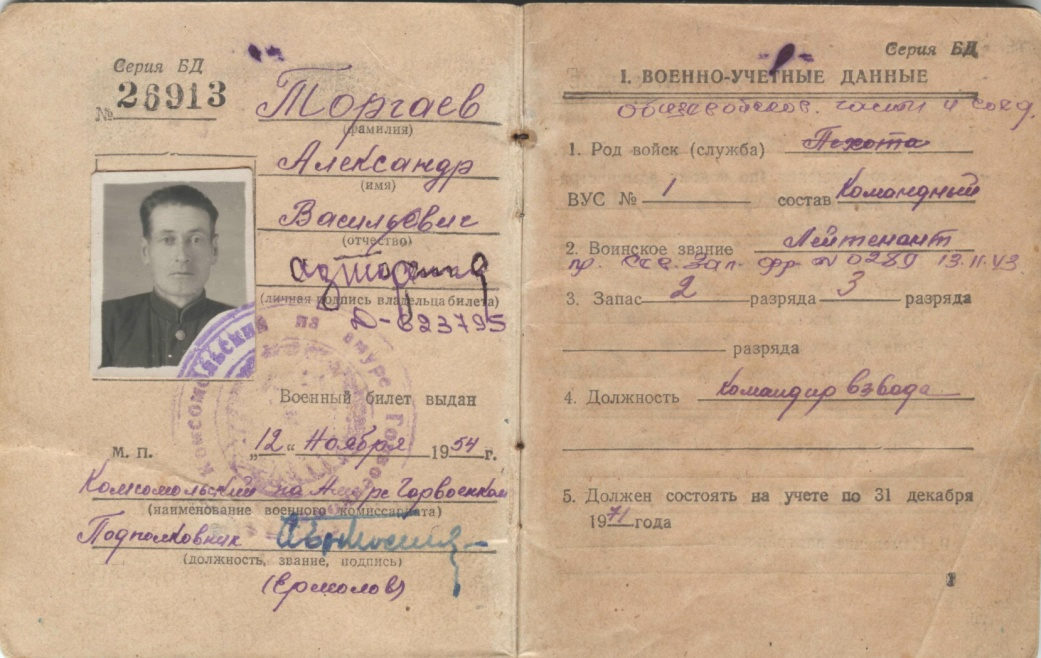 Серия БД
№ 26913
Торгаев
(фамилия)
Александр
(имя)
Васильевич
(отчество)
(личная подпись владельца билета)
Д-623795
Комсомольский на Амуре Горвоен
Военный билет выдан
М. П.
„12“ Ноября 1954 г.
Комсомольский на Амуре Горвоенком
(наименование военного комиссариата)
Подполковник
(должность, звание, подпись)
(Ермолов)
Серия БД
I. ВОЕННО-УЧЕТНЫЕ ДАННЫЕ
Общевойсков. части и соед.
1. Род войск (служба) Пехота
ВУС № 1 состав Командный
2. Воинское звание Лейтенант
пр. фр N 0289 13.11.43
3. Запас 2 разряда 3 разряда
разряда
4. Должность Командир взвода
5. Должен состоять на учете по 31 декабря
1971 года
1